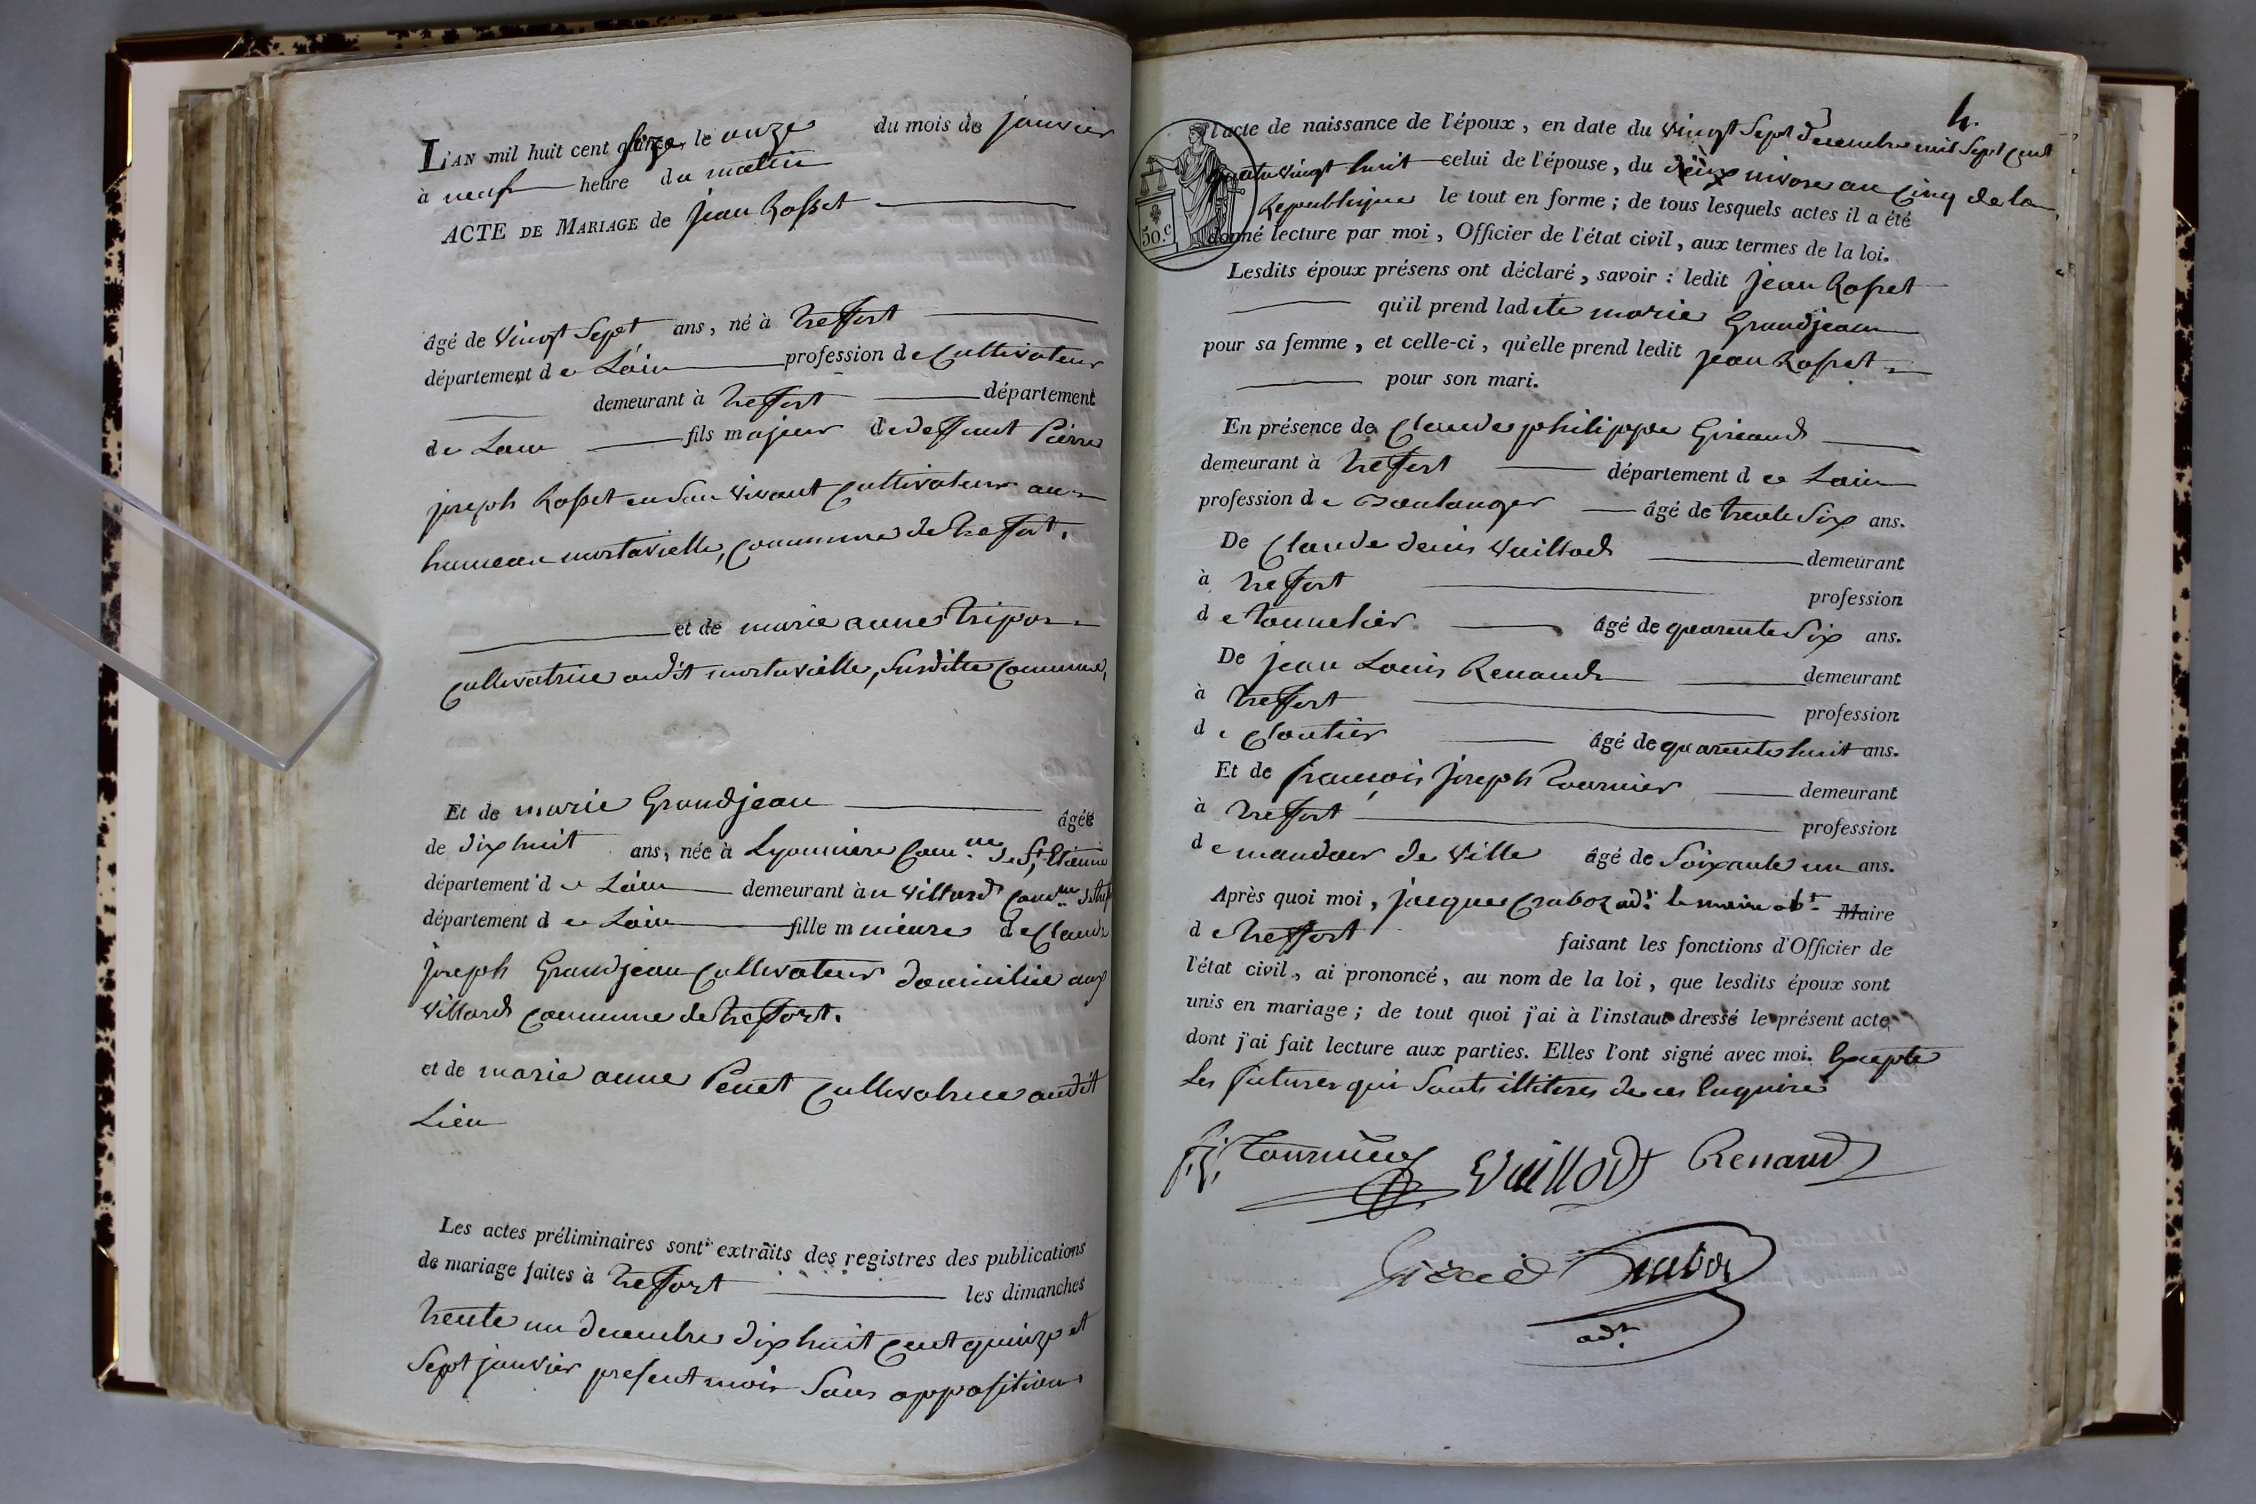 L'AN mil huit cent seize, le onze du mois de janvier
à neuf heure du matin
ACTE DE MARIAGE de jean Rosset
âgé de vingt Sept ans, né à treffort
département de L'ain profession de Cultivateur
demeurant à treffort département
de Lain fils majeur de deffunt Pierre
joseph Rosset en son vivant Cultivateur au
hameau montavielle, commune de treffort.
et de marie anne tripoz
cultivatrice audit montavielle, susditte commune,
Et de marie Grandjean âgée
de dix huit ans, née à Lyonnière Com.ne de St Etienne
département de L'ain demeurant au villard Com.ne de treff
département de Lain fille mineure de Claude
joseph Grandjean Cultivateur domicilié aux
villard commune de treffort.
et de marie anne Penet Cultivatrice audit
Lieu
Les actes préliminaires sont extraits des registres des publications
de mariage faites à treffort les dimanches
trente un decembre dix huit cent quinze et
Sept janvier present mois Sans opposition
4.
l'acte de naissance de l'époux, en date du vingt Sept decembre mil Sept cent
quatre vingt huit celui de l'épouse, du nivose an Cinq de la
Republique le tout en forme; de tous lesquels actes il a été
donné lecture par moi, Officier de l'état civil, aux termes de la loi.
50.c
Lesdits époux présens ont déclaré, savoir: ledit jean Rosset
qu'il prend ladite marie Grandjean
pour sa femme, et celle-ci, qu'elle prend ledit jean Rosset
pour son mari.
En présence de Claude philippe Gireaud
demeurant à treffort département de Lain
profession de Boulanger âgé de trente Six ans.
De Claude denis Vuillod demeurant
à treffort profession
de tonnelier âgé de quarente Six ans.
De jean Louis Renaud demeurant
à treffort profession
de cloutier âgé de quarente huit ans.
Et de françois joseph tournier demeurant
à treffort profession
de mandeur de ville âgé de Soixante un ans.
Après quoi moi, jacques Craboz adj.t le maire abt Maire
de treffort faisant les fonctions d'Officier de
l'état civil, ai prononcé, au nom de la loi, que lesdits époux sont
unis en mariage; de tout quoi j'ai à l'instant dressé le présent acte
dont j'ai fait lecture aux parties. Elles l'ont signé avec moi. Excepté
Les futures qui Sont illiteres de ces Enquire
f. j. tournier Vuillod Renaud
Giraud Craboz
adt